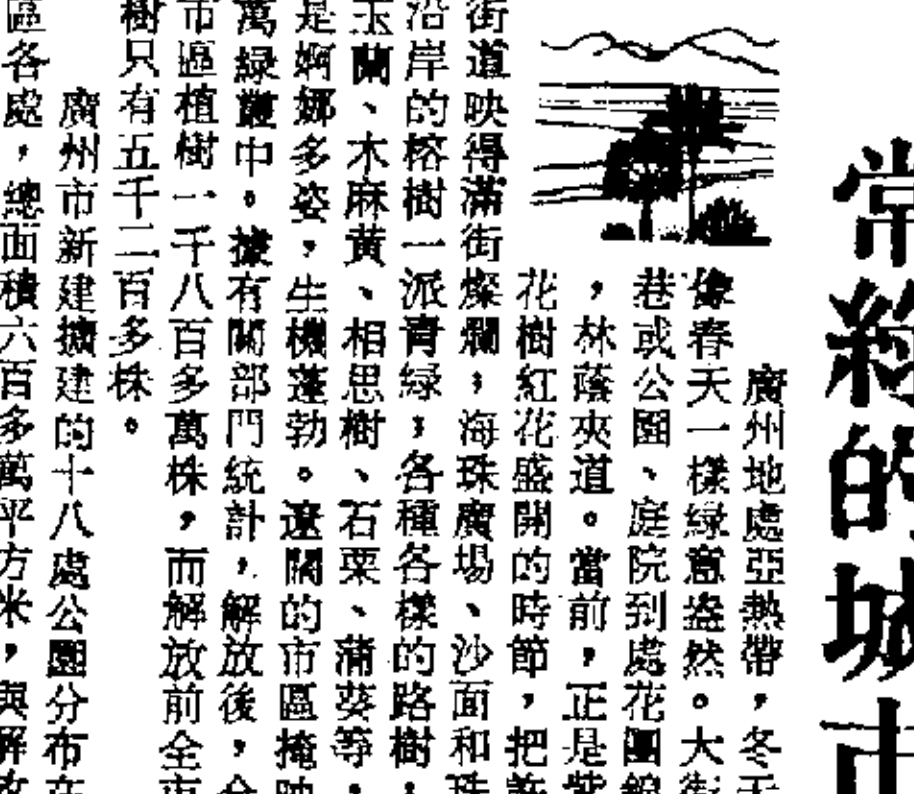 常綠的城市
廣州地處亞熱帶，冬天
像春天一樣綠意盎然。大街
巷或公園、庭院到處花團錦
，林蔭夾道。當前，正是紫
花樹紅花盛開的時節，把許
街道映得滿街燦爛；海珠廣場、沙面和珠
沿岸的榕樹一派青綠；各種各樣的路樹，
玉蘭、木麻黃、相思樹、石栗、蒲葵等，
是婀娜多姿，生機蓬勃。遼闊的市區掩映
萬綠叢中。據有關部門統計，解放後，全
市區植樹一千八百多萬株，而解放前全市
樹只有五千二百多株。
廣州市新建擴建的十八處公園分布在
區各處，總面積六百多萬平方米，與解放